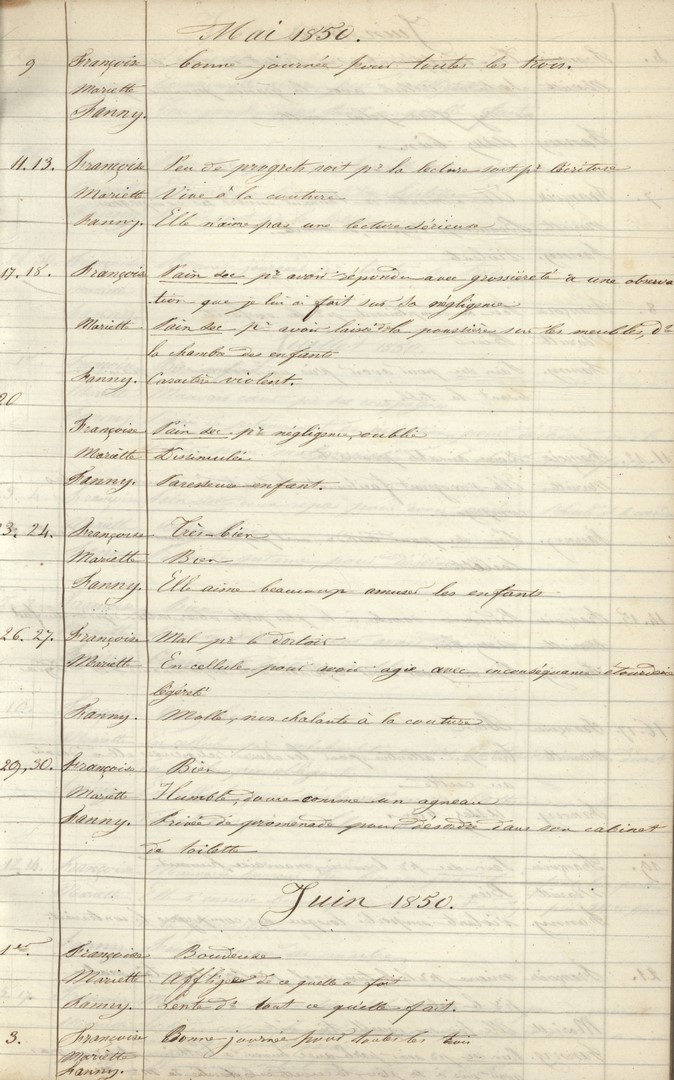 Mai 1850.
9 Françoise bonne journée pour toutes les trois.
Mariette
Fanny.
11. 13. Françoise Peu de progrets soit pr la lecture soit pr l'écriture
Mariette Vive à la couture
Fanny. Elle n'aime pas une lecture sérieuse
17. 18. Françoise Pain sec pr avoir répondu avec grossièreté à une observa
tion que je lui ai fait sur sa négligence
Mariette Pain sec pr avoir laissé la poussière sur les meubles, ds
la chambre des enfants
Fanny. Caractère violent.
20
Françoise Pain sec pr négligence, oublie
Mariette Dissimulée
Fanny. Paresseuse enfant.
23. 24. Françoise Très-bien
Mariette Bien
Fanny. Elle aime beaucoup amuser les enfants
26. 27. Françoise Mal pr le dortoir
Mariette En cellule pour avoir agit avec inconséquence étourderie
légéreté
Fanny. Molle, nonchalante à la couture
29, 30. Françoise Bien
Mariette Humble, douce comme un agneau
Fanny. Privée de promenade pour désordre dans son cabinet
de toilette
Juin 1850.
1er. Françoise Boudeuse
Mariette Affligée de ce qu'elle a fait
Fanny. Lente ds tout ce qu'elle fait.
3. Françoise Bonne journée pour toutes les trois
Mariette
Fanny.